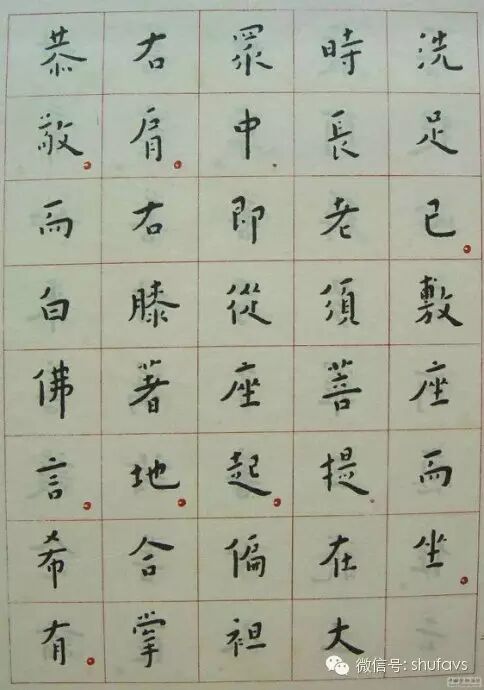 洗足已敷座而坐
時長老須菩提在大
眾中即從座起偏袒
右肩右膝著地合掌
恭敬而白佛言希有
微信号: shufavs